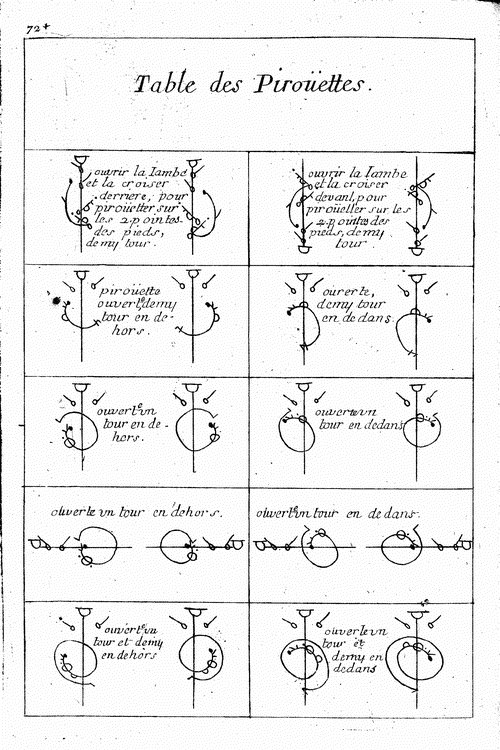 72+
Table des Piroüettes.
ouvrir la Iambe
et la croiser
derriere, pour
piroüetter sur
les 2 pointes
des pieds,
demy tour.
ouvrir la Iambe
et la croiser
devant, pour
piroüetter sur les
2 pointes des
pieds, demy
tour.
piroüette
ouverte demy
tour en de-
hors.
ouverte,
demy tour
en dedans
ouverte vn
tour en de-
hors.
ouverte vn
tour en dedans
ouverte vn tour en dehors.
ouverte vn tour en dedans.
ouverte vn
tour et demy
en dehors
ouverte vn
tour et
demy en
dedans